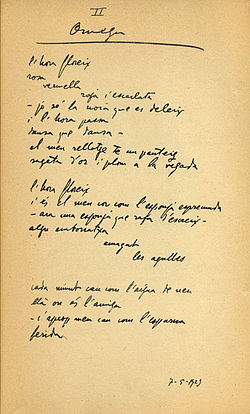 II
Omega
l'hora floreix
rosa
vermella
roja i escarlata
- jo sé la noia que es deleix
i l'hora passa
musa que dansa -
el meu rellotge té un panteix
sageta d'or i plom a la vegada
l'hora floreix
i és el meu cor com l'esponja espremuda
- ara una esponja que
algú
amagat
les agulles
cada minut cau com l'aigua de neu
allà on és l'amiga
- i aquest meu cau com l'esparsa
ferida
7-5-1923